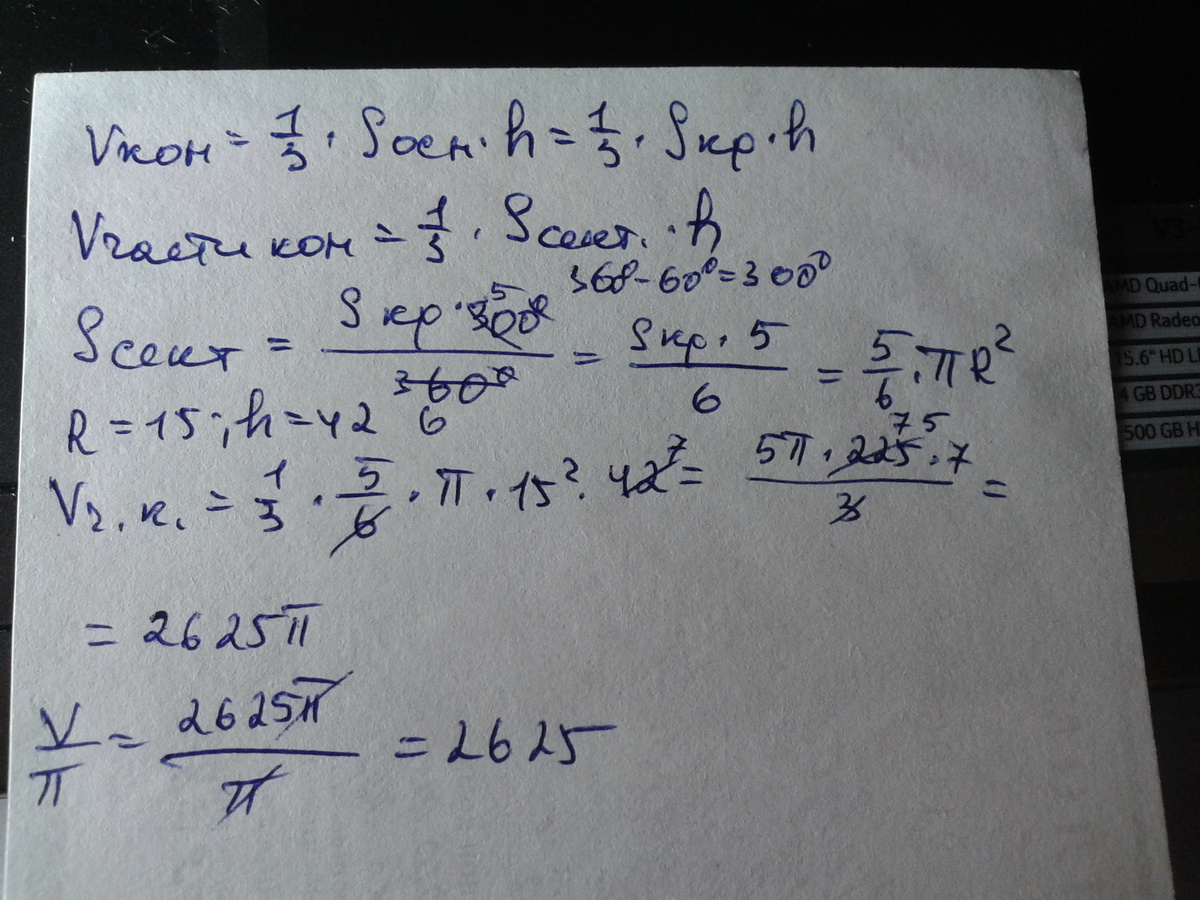 Vкон = 1/3 · Sосн · h = 1/3 · Sкр · h
Vчасти кон = 1/3 · Sсект. · h
360 - 60° = 300°
Sсект = Sкр · 300° 5 / 360° 6 = Sкр · 5 / 6 = 5/6 · πR²
R = 15; h = 42
Vч.к. = 1/3 · 5/6 · π · 15² · 42 7 = 5π · 225 75 · 7 / 3 =
= 2625π
V/π = 2625π / π = 2625
V3-
AMD Quad-
AMD Radeo
15.6" HD L
4 GB DDR3
500 GB H